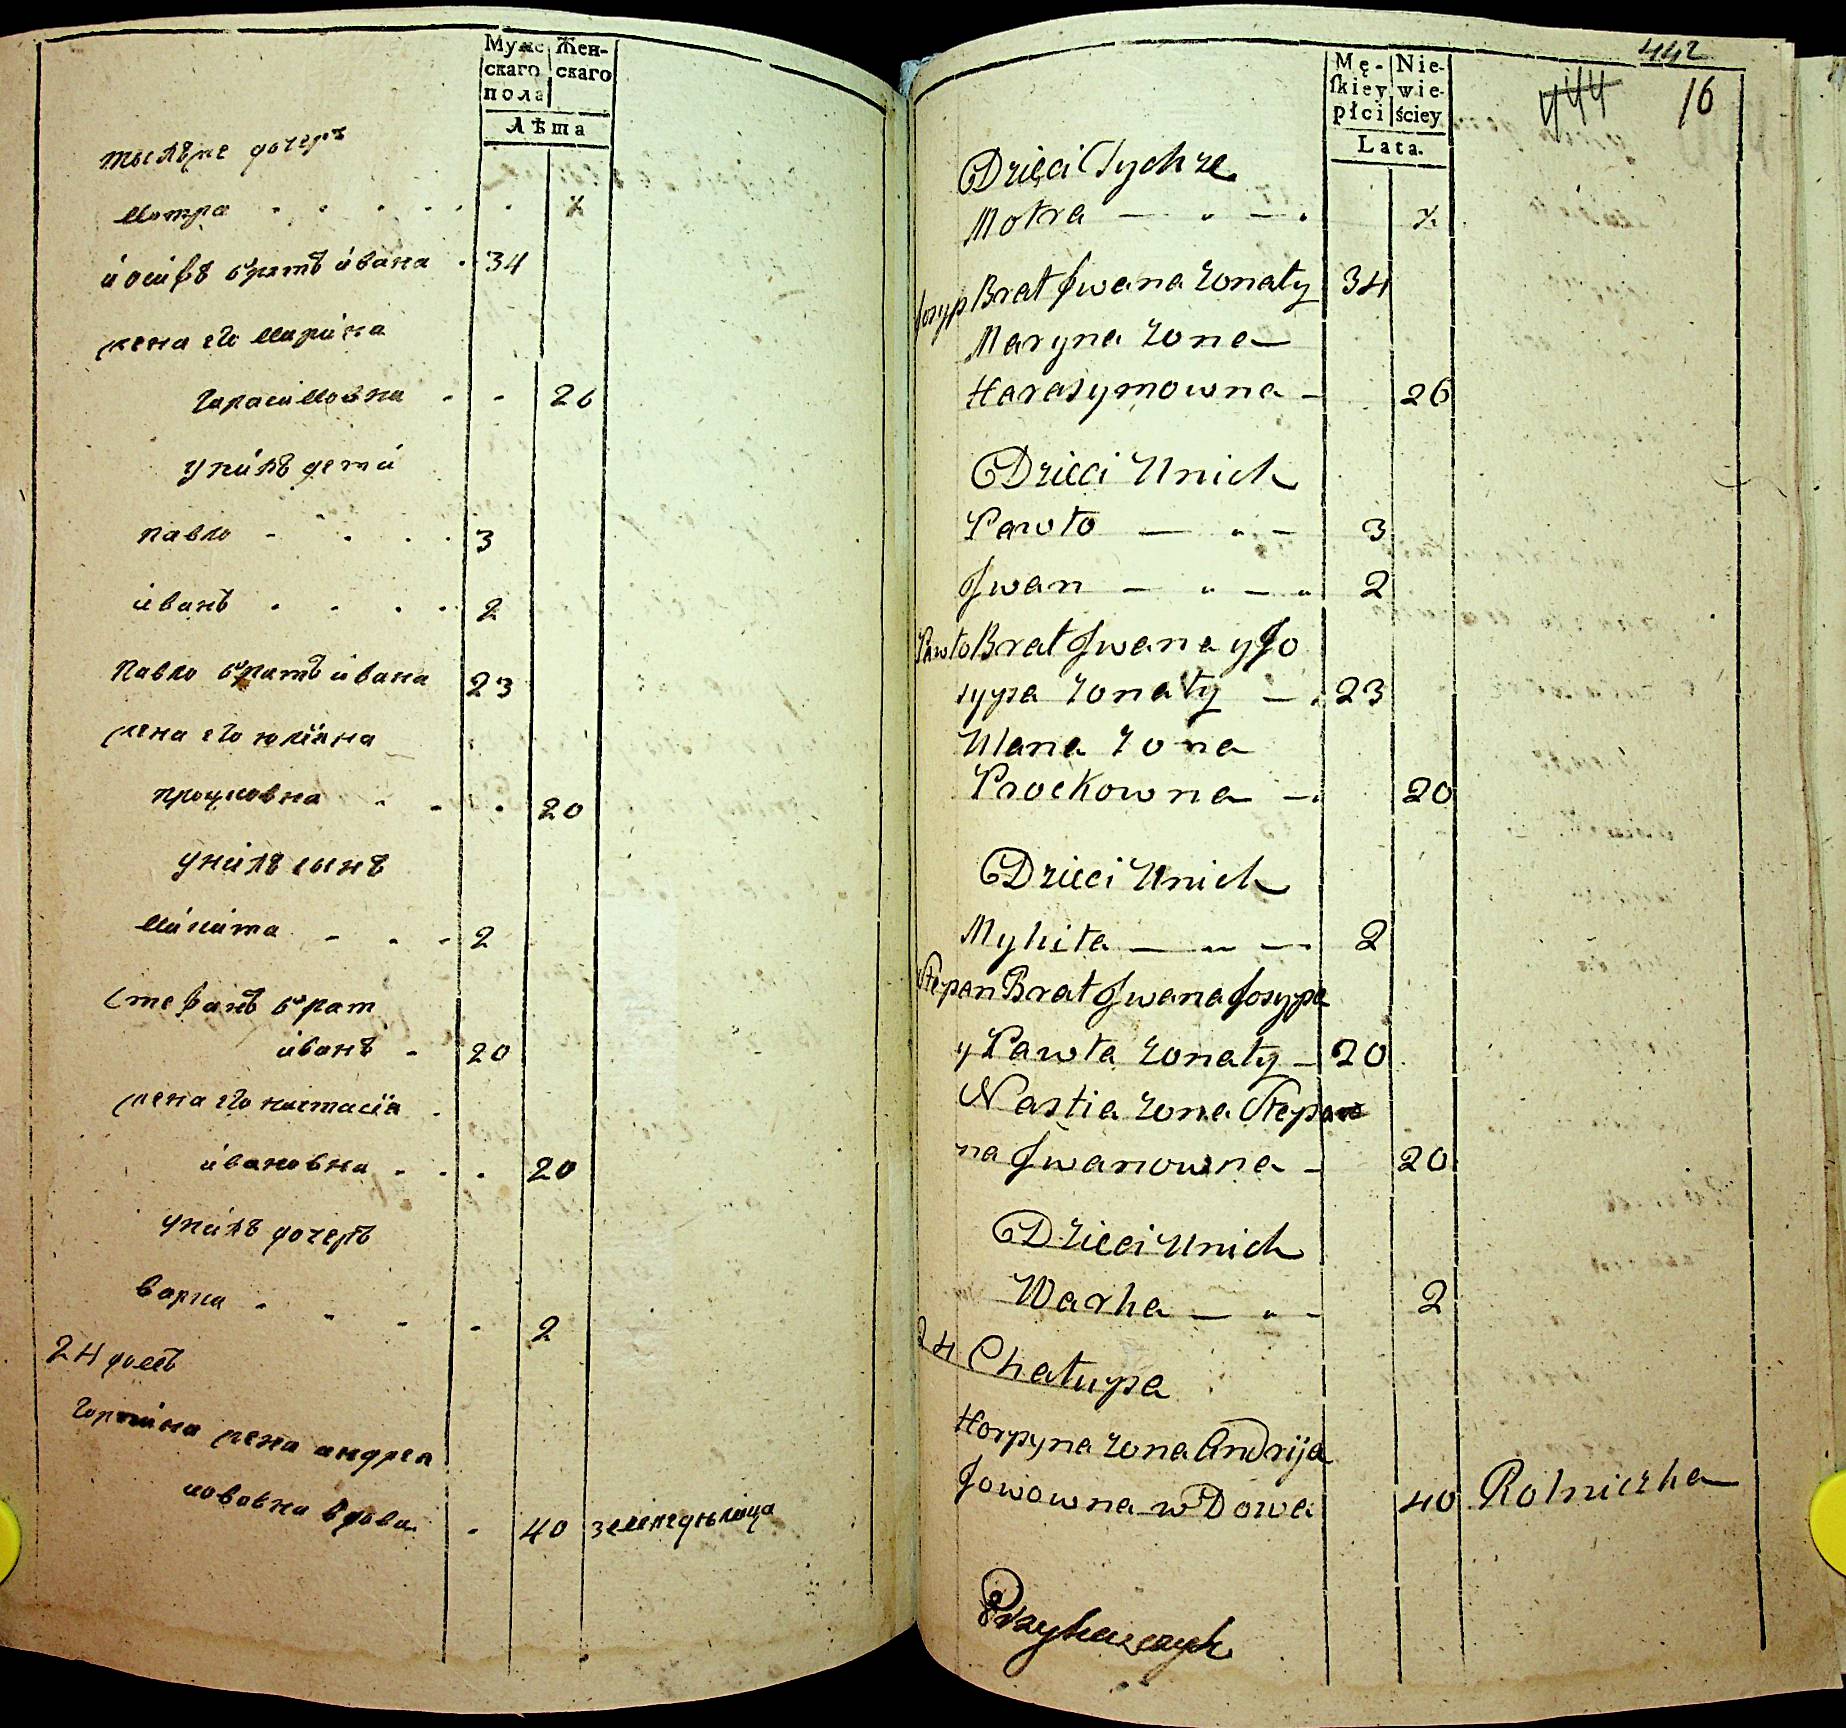 Муже
скаго
пола
Жен-
скаго
Лѣта
тыхъже дочеръ
Мотра . . . . . . ½
иосифъ братъ ивана . 34
жена его Марина
Гарасимовна . . 26
унихъ дети
павло . . . . 3
иванъ . . . . 2
Павло братъ ивана 23
жена его юлиана
процковна . . . 20
унихъ сынъ
микита . . . 2
Стефанъ брат
иванъ . 20
жена его настасия .
ивановна . . . 20
унихъ дочеръ
варка . . . . 2
24 домъ
Горпина жена андрея
иововна вдова . 40 земледѣлица
442
Mę-
skiey
płci
Nie-
wie-
ściey
Lata.
444 16
Dzieci Tychże
Motra — „ — . ½
Josyp Brat Jwana żonaty 34
Maryna żona —
Harasymowna — 26
Dzieci Unich
Pawło — „ — 3
Jwan — „ — „ 2
Pawło Brat Jwana y Jo
sypa żonaty — . 23
Ulana żona
Prockowna — . 20
Dzieci Unich
Mykita — „ — . 2
Stepan Brat Jwana Josypa
y Pawła żonaty — 20
Nastia żona Stepa
na Jwanowna — 20
Dzieci Unich
Warka — „ — 2
24 Chałupa
Horpyna żona Andrija
Jowowna wDowa 40 Rolniczka